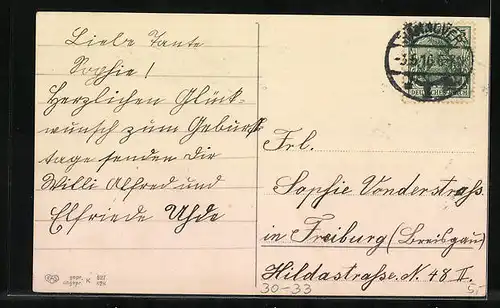 Liebe Tante
Sophie!
Herzlichen Glück-
wunsch zum Geburts
tage senden dir
Willi Alfred und
Elfriede Uhde
HANNOVER
-3.5.16.6-7N
Frl.
Sophie Vonderstraß
in Freiburg (Breisgau)
Hildastraße. N. 48 II.
30-33